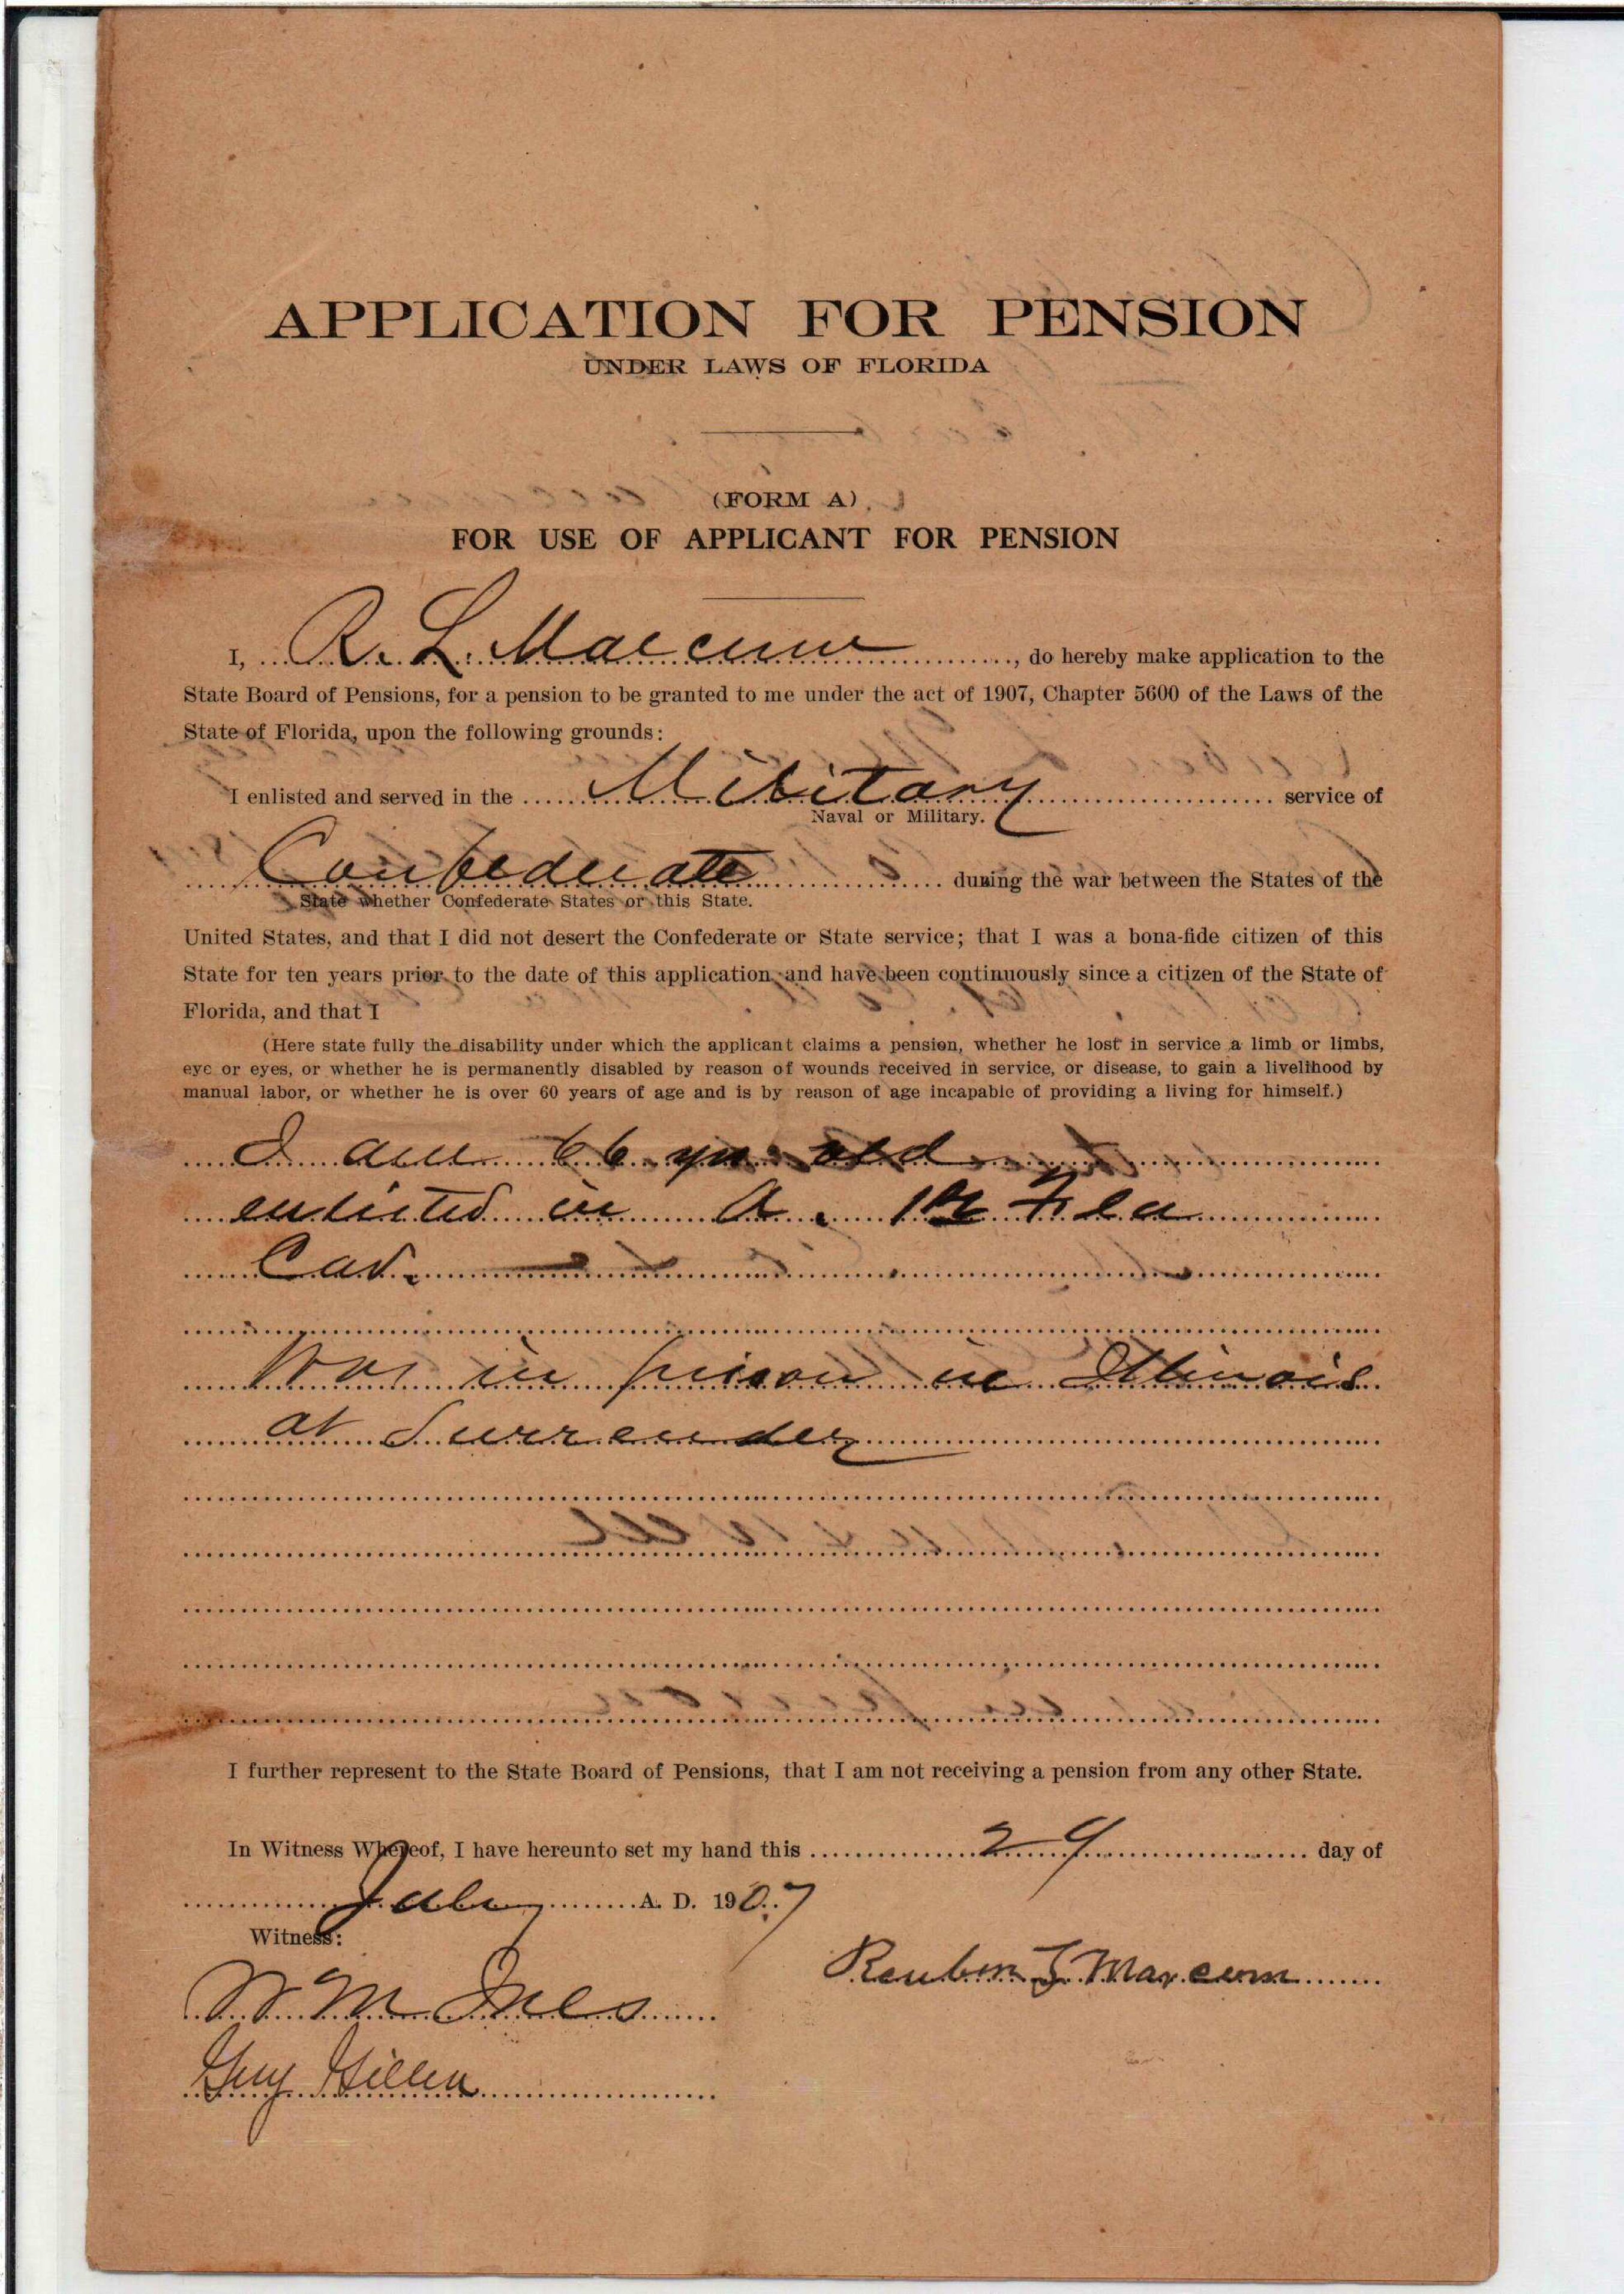 APPLICATION FOR PENSION
UNDER LAWS OF FLORIDA
(FORM A)
FOR USE OF APPLICANT FOR PENSION
I, R. L. Marcum, do hereby make application to the
State Board of Pensions, for a pension to be granted to me under the act of 1907, Chapter 5600 of the Laws of the
State of Florida, upon the following grounds:
I enlisted and served in the Military service of
Naval or Military.
Confederate during the war between the States of the
State whether Confederate States or this State.
United States, and that I did not desert the Confederate or State service; that I was a bona-fide citizen of this
State for ten years prior to the date of this application, and have been continuously since a citizen of the State of
Florida, and that I
(Here state fully the disability under which the applicant claims a pension, whether he lost in service a limb or limbs,
eye or eyes, or whether he is permanently disabled by reason of wounds received in service, or disease, to gain a livelihood by
manual labor, or whether he is over 60 years of age and is by reason of age incapable of providing a living for himself.)
I am 66 yrs old
enlisted in A. 1st Fla
Cav.
Was in prison in Illinois
at Surrender
I further represent to the State Board of Pensions, that I am not receiving a pension from any other State.
In Witness Whereof, I have hereunto set my hand this 29 day of
July A. D. 1907
Witness:
Reuben L Marcum
W. M. Ives
Guy Gillen